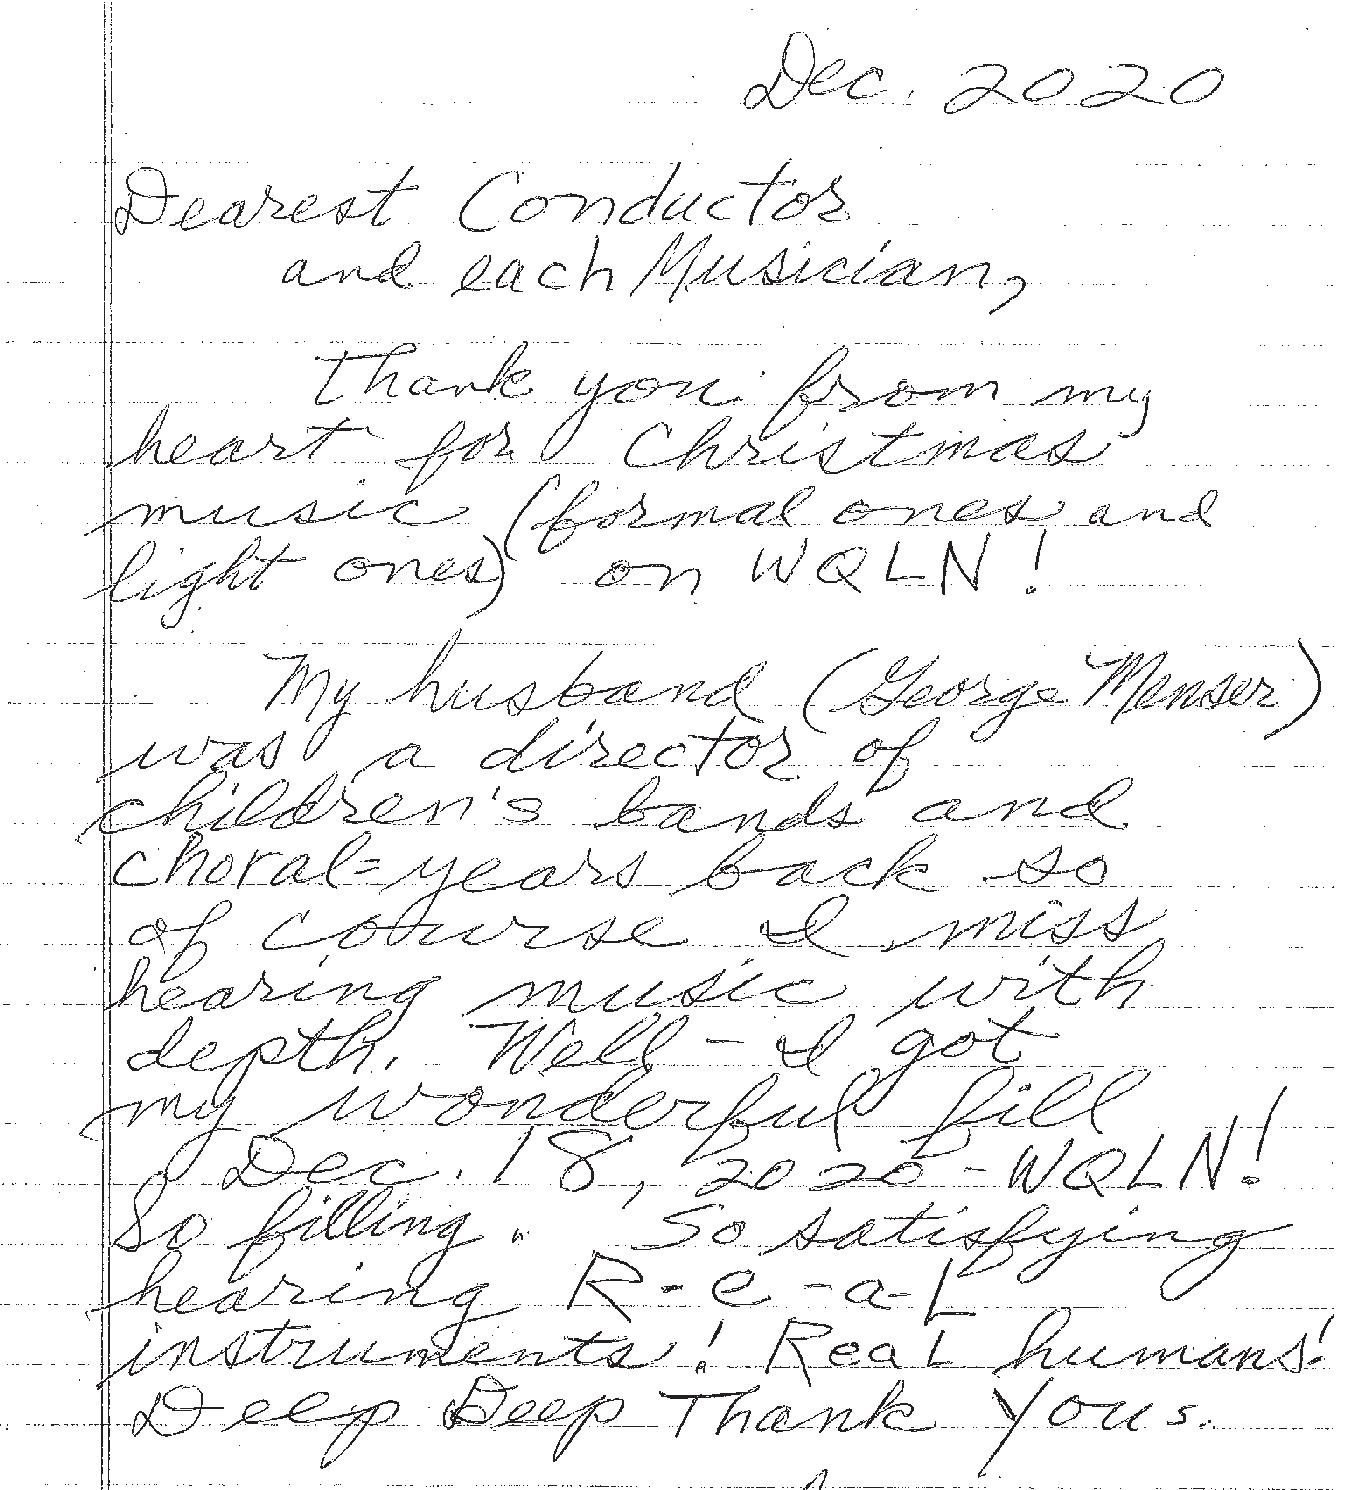 Dec. 2020
Dearest Conductor
and each Musician,
Thank you from my
heart for Christmas
music (formal ones and
light ones) on WQLN!
My husband (George Menser)
was a director of
children's bands and
choral = years back so
of course I miss
hearing music with
depth. Well - I got
my wonderful fill
Dec. 18, 2020 - WQLN!
So filling. So satisfying
hearing R-e-a-L
instruments! Real humans!
Deep Deep Thank Yous.